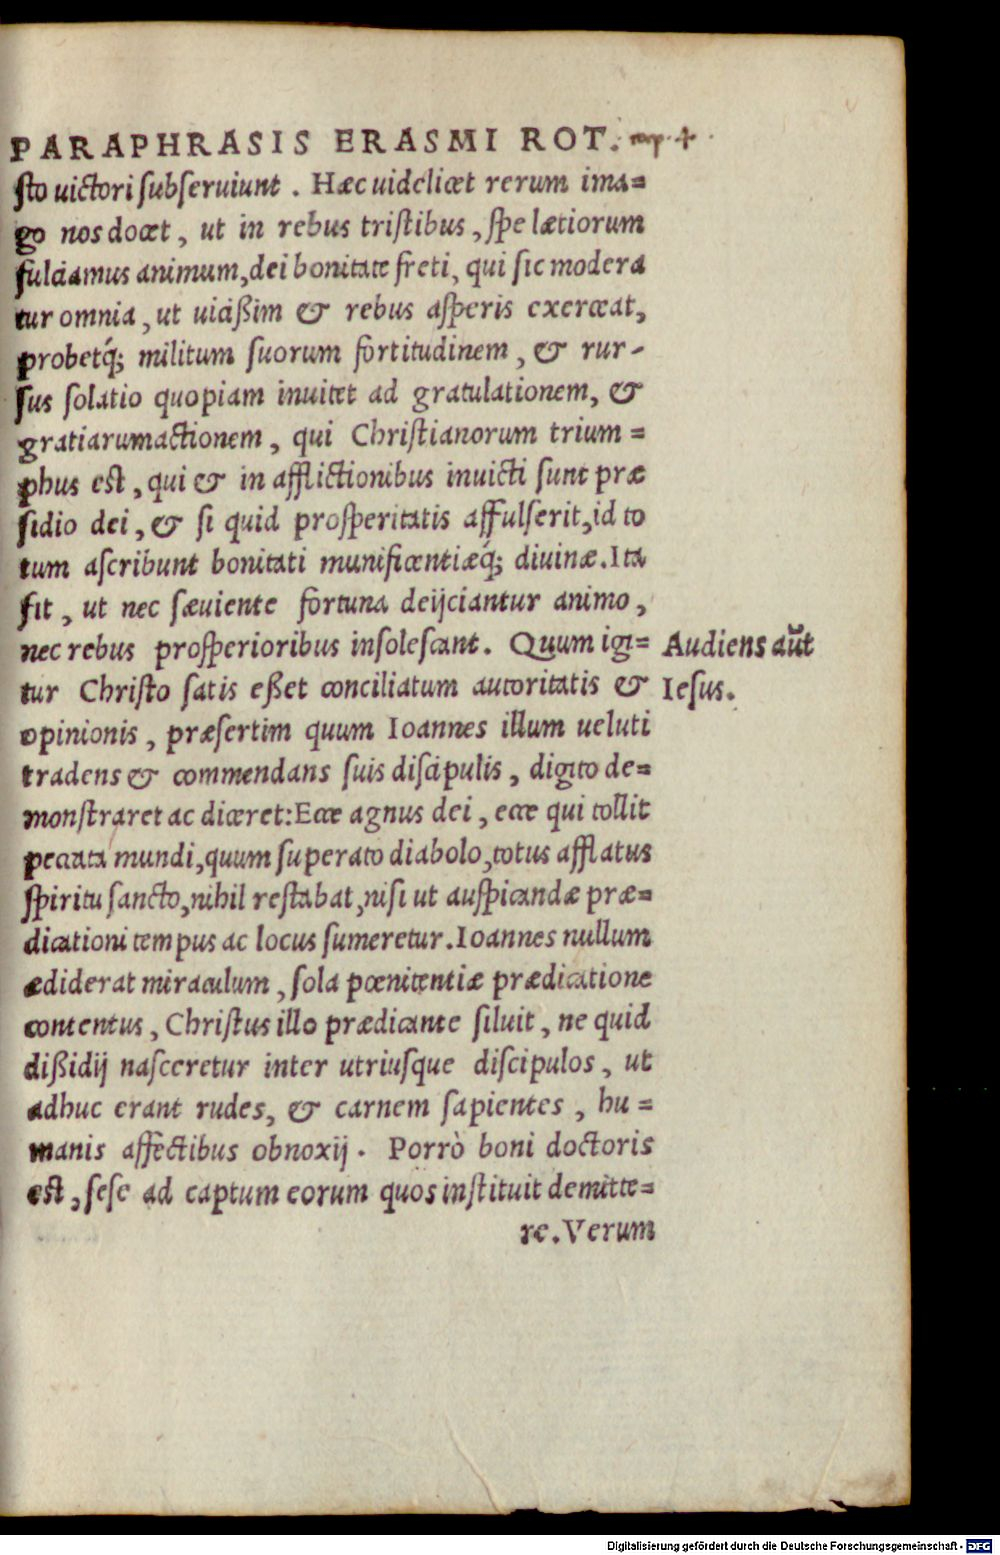 PARAPHRASIS ERASMI ROT.
sto uictori subseruiunt . Hæc uidelicet rerum ima=
go nos docet, ut in rebus tristibus, spe lætiorum
fulciamus animum, dei bonitate freti, qui sic modera
tur omnia, ut uicißim & rebus asperis exerceat,
probetq́; militum suorum fortitudinem, & rur-
sus solatio quopiam inuitet ad gratulationem, &
gratiarumactionem, qui Christianorum trium=
phus est, qui & in afflictionibus inuicti sunt præ
sidio dei, & si quid prosperitatis affulserit, id to
tum ascribunt bonitati munificentiæq́; diuinæ. Ita
fit, ut nec sæuiente fortuna deijciantur animo,
nec rebus prosperioribus insolescant. Quum igi=
Audiens aūt
tur Christo satis eßet conciliatum autoritatis &
Iesus.
opinionis, præsertim quum Ioannes illum ueluti
tradens & commendans suis discipulis, digito de=
monstraret ac diceret: Ecce agnus dei, ecce qui tollit
peccata mundi, quum superato diabolo, totus afflatus
spiritu sancto, nihil restabat, nisi ut auspicandæ præ=
dicationi tempus ac locus sumeretur. Ioannes nullum
ædiderat miraculum, sola pœnitentiæ prædicatione
contentus, Christus illo prædicante siluit, ne quid
dißidij nasceretur inter utriusque discipulos, ut
adhuc erant rudes, & carnem sapientes, hu=
manis affectibus obnoxij . Porrò boni doctoris
est, sese ad captum eorum quos instituit demitte=
re. Verum
Digitalisierung gefördert durch die Deutsche Forschungsgemeinschaft - DFG